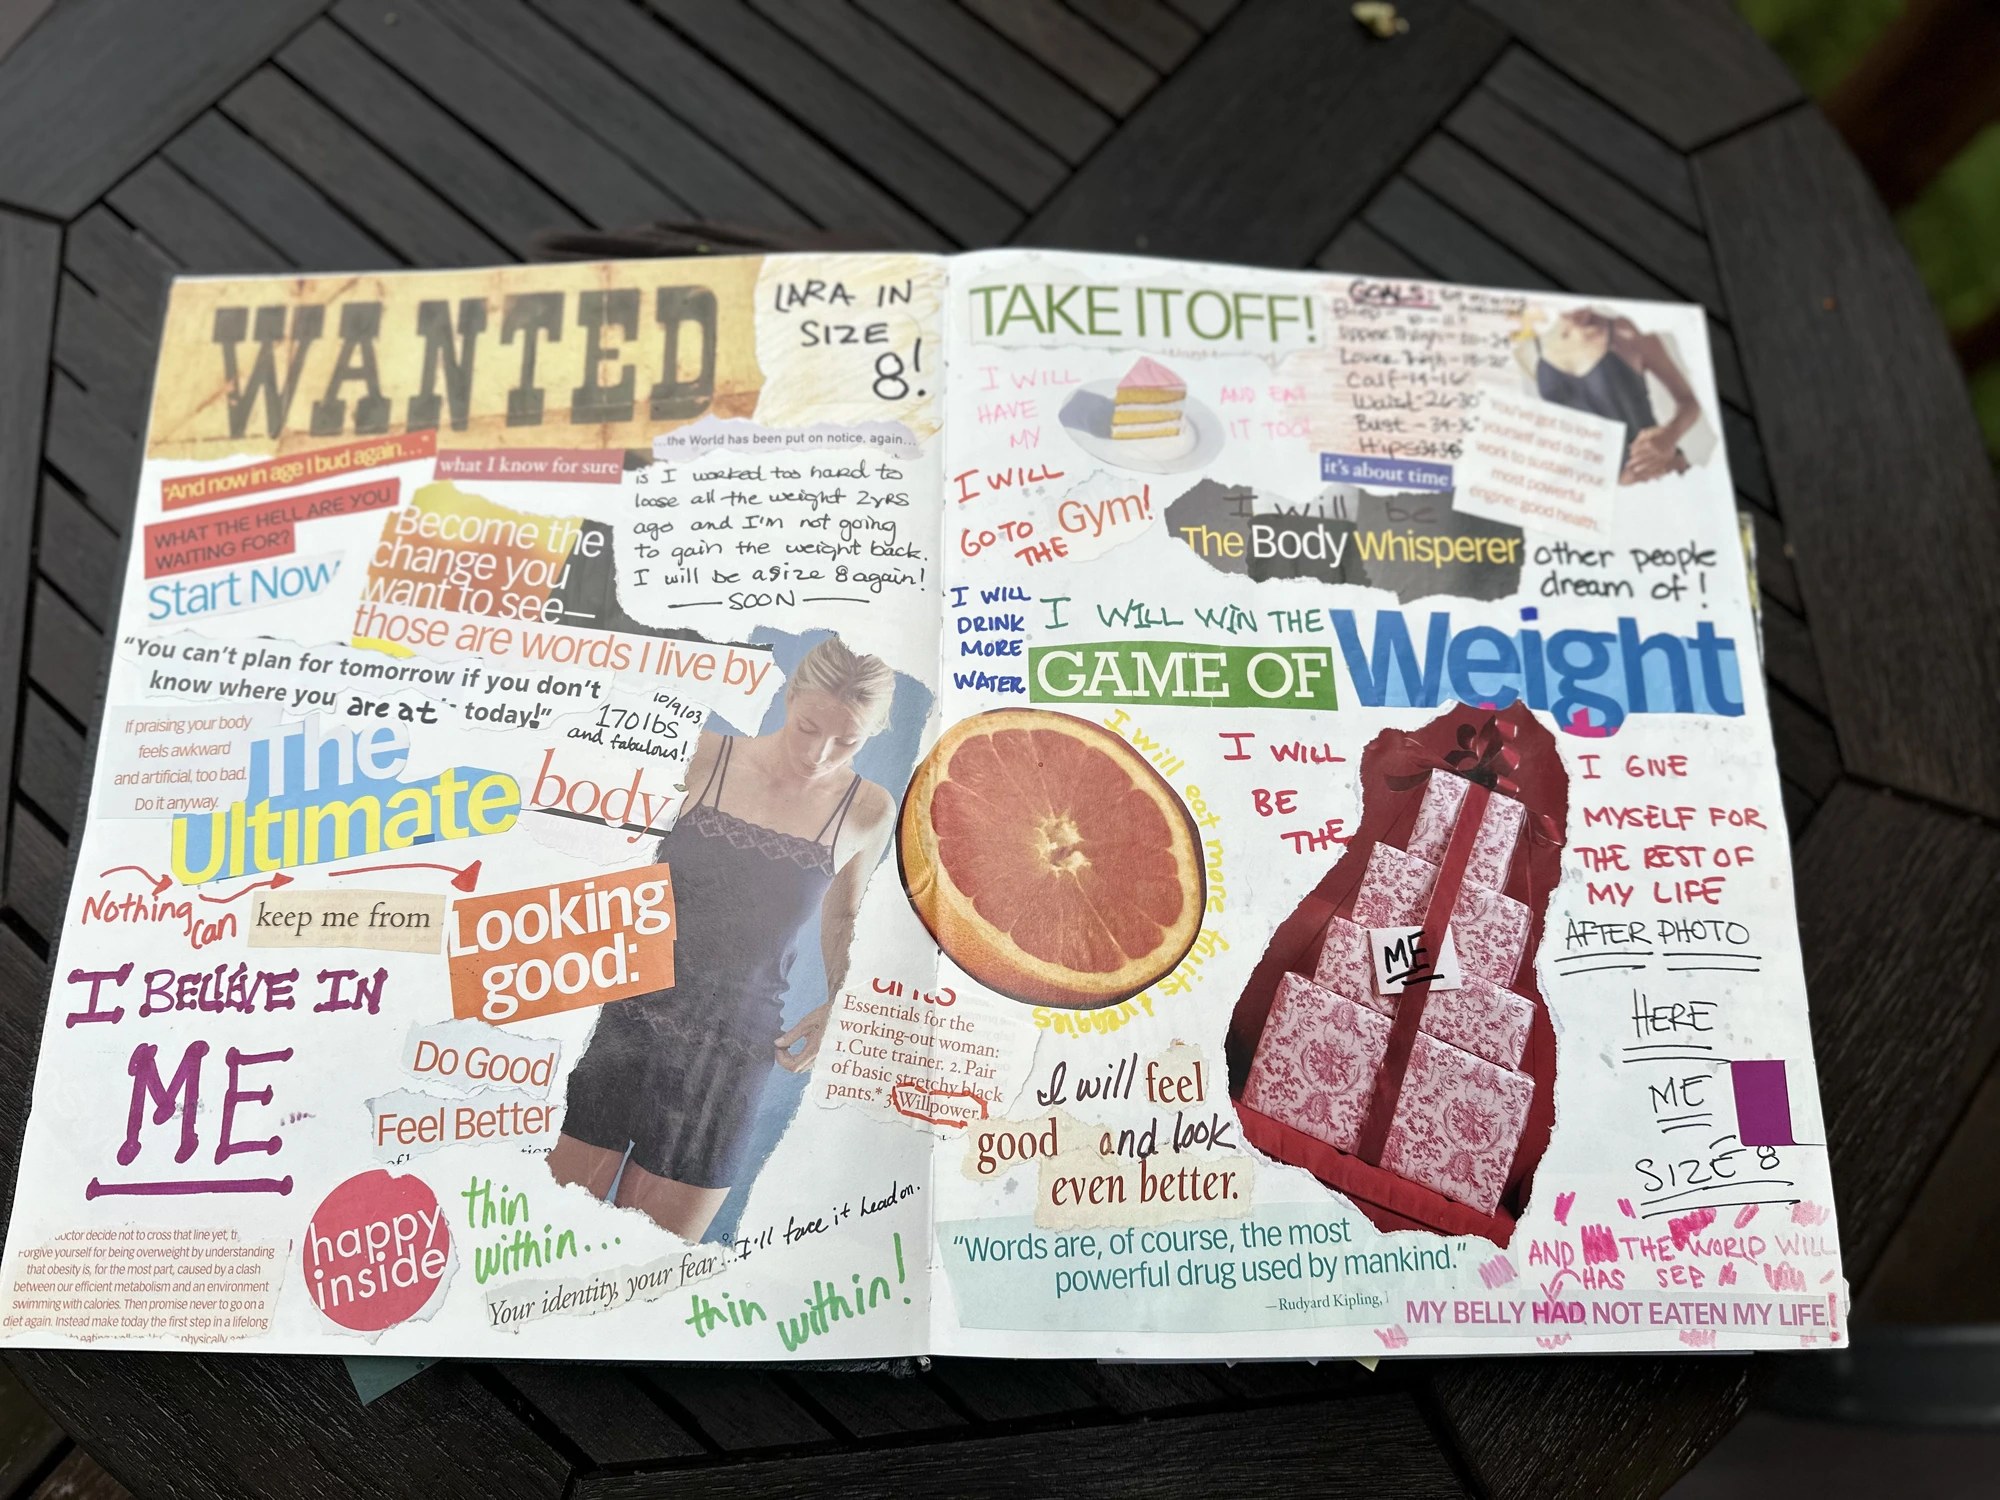 WANTED
LARA IN
SIZE
8!
"And now in age I bud again..."
what I know for sure
WHAT THE HELL ARE YOU
WAITING FOR?
Start Now
...the World has been put on notice, again...
is I worked too hard to
loose all the weight 2yrs
ago and I'm not going
to gain the weight back.
I will be a size 8 again!
SOON
Become the
change you
want to see—
those are words I live by
"You can't plan for tomorrow if you don't
know where you are at today!"
10/9/03
170lbs
and fabulous!
If praising your body
feels awkward
and artificial, too bad.
Do it anyway.
The
Ultimate
body
Nothing can
keep me from
Looking
good:
I BELIEVE IN
ME...
Do Good
Feel Better
happy
inside
thin
within...
Your identity, your fear... I'll face it head on.
thin within!
doctor decide not to cross that line yet,
Forgive yourself for being overweight by understanding
that obesity is, for the most part, caused by a clash
between our efficient metabolism and an environment
swimming with calories. Then promise never to go on a
diet again. Instead make today the first step in a lifelong
physically
Essentials for the
working-out woman:
1. Cute trainer. 2. Pair
of basic stretchy black
pants.* 3. Willpower.
TAKE IT OFF!
GOALS:
Lower Thigh
Calf-14-16
Waist-26-30"
Bust-34-36"
Hips
I WILL
HAVE
MY
AND EAT
IT TOO!
it's about time
You've got to love
yourself and do the
work to sustain your
most powerful
engine: good health.
I WILL
GO TO
THE
Gym!
I will be
The Body Whisperer
other people
dream of!
I WILL
DRINK
MORE
WATER
I WILL WIN THE
GAME OF
Weight
I will eat more fruits & veggies
I WILL
BE
THE
ME
I GIVE
MYSELF FOR
THE REST OF
MY LIFE
AFTER PHOTO
HERE
ME
SIZE 8
I will feel
good and look
even better.
"Words are, of course, the most
powerful drug used by mankind."
—Rudyard Kipling,
AND THE WORLD WILL
HAS SEE
MY BELLY HAD NOT EATEN MY LIFE!